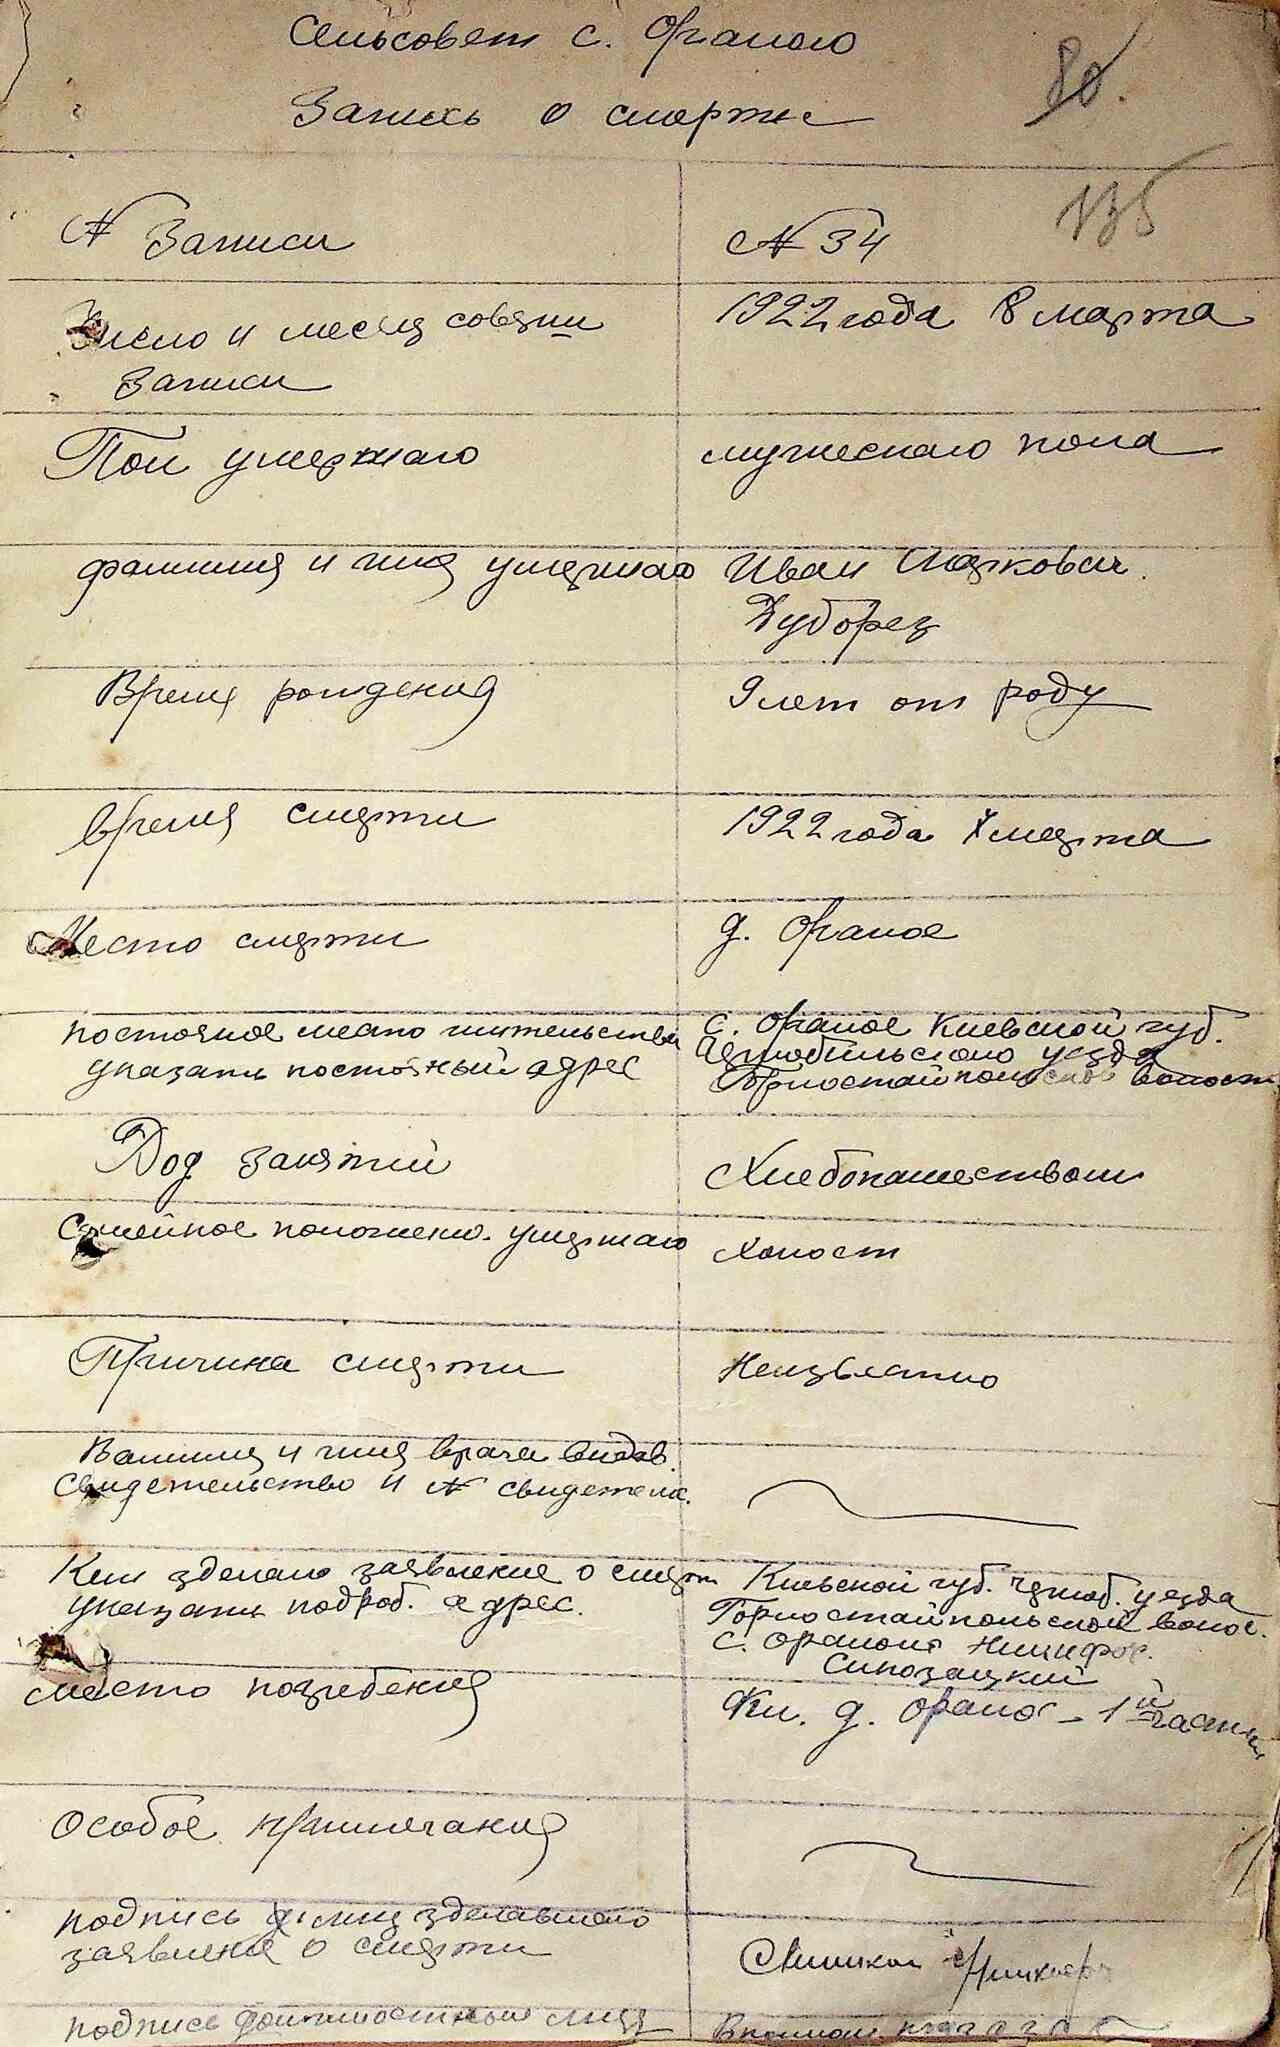 Сельсовет с.Ораного
80.
Запись о смерти
135
№ Записи
№ 34
Число и месяц
Записи
1922 года 8 марта
Пол умершаго
мужескаго пола
фамилия и имя умершаго
Иван
Дуборез
Время рождения
9 лет от роду
время смерти
1922 года марта
Место смерти
д. Ораное
постояное место жительства
указать постояный адрес
с. Ораное Киевской губ.
Чернобыльского уезда
Горностайпольской волости
Род занятий
Хлебопашеством
Семейное положени. умершаго
Холост
Причина смерти
Неизвестно
Фамилия и имя врача видав.
свидетельство и № свидетель.
Кем зделано заявление о смерт
указать подроб. адрес.
Киевской губ. Черноб. уезда
Горностайпольской волос.
с. Ораного Никифор.
место погребения
Кл. д.Ораное - 1й части
Особое примечания
подпись лиц зделавшего
заявление о смерти
подпись лиц